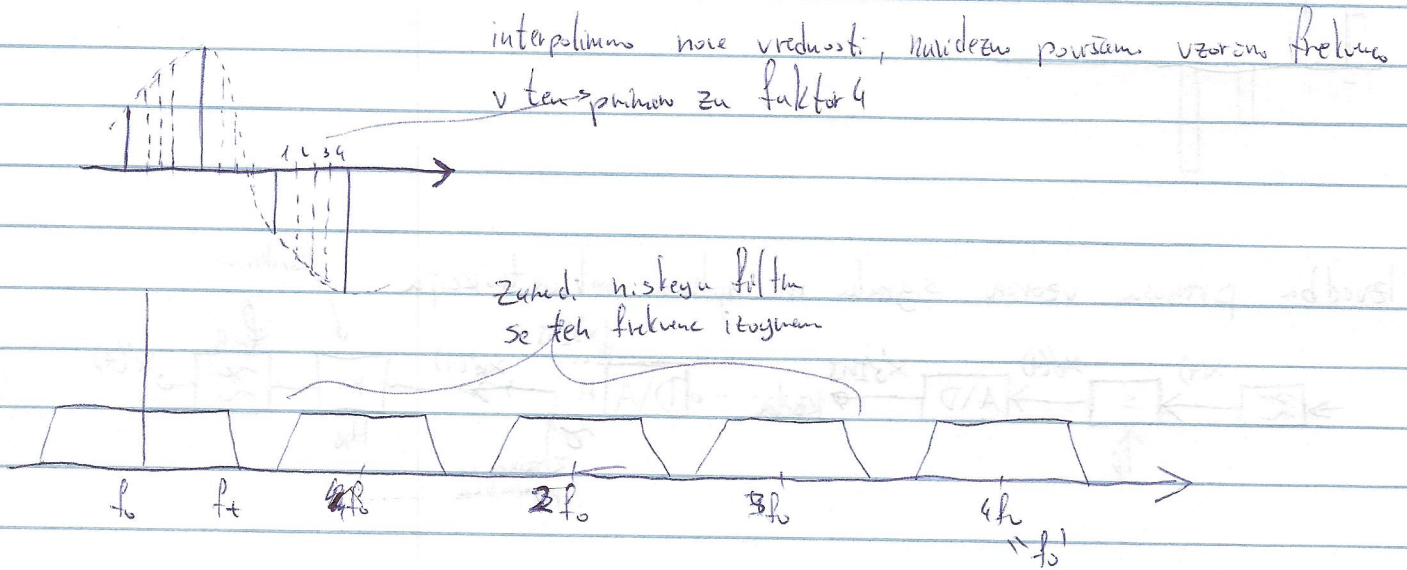 interpoliramo nove vrednosti, navidezno povišamo vzorčno frekvenco
v tem primeru za faktor 4
1 2 3 4
Zaradi nizkega filtra
se teh frekvenc izognem
f₀ f₀ 2f₀ 3f₀ 4f₀
f₀'